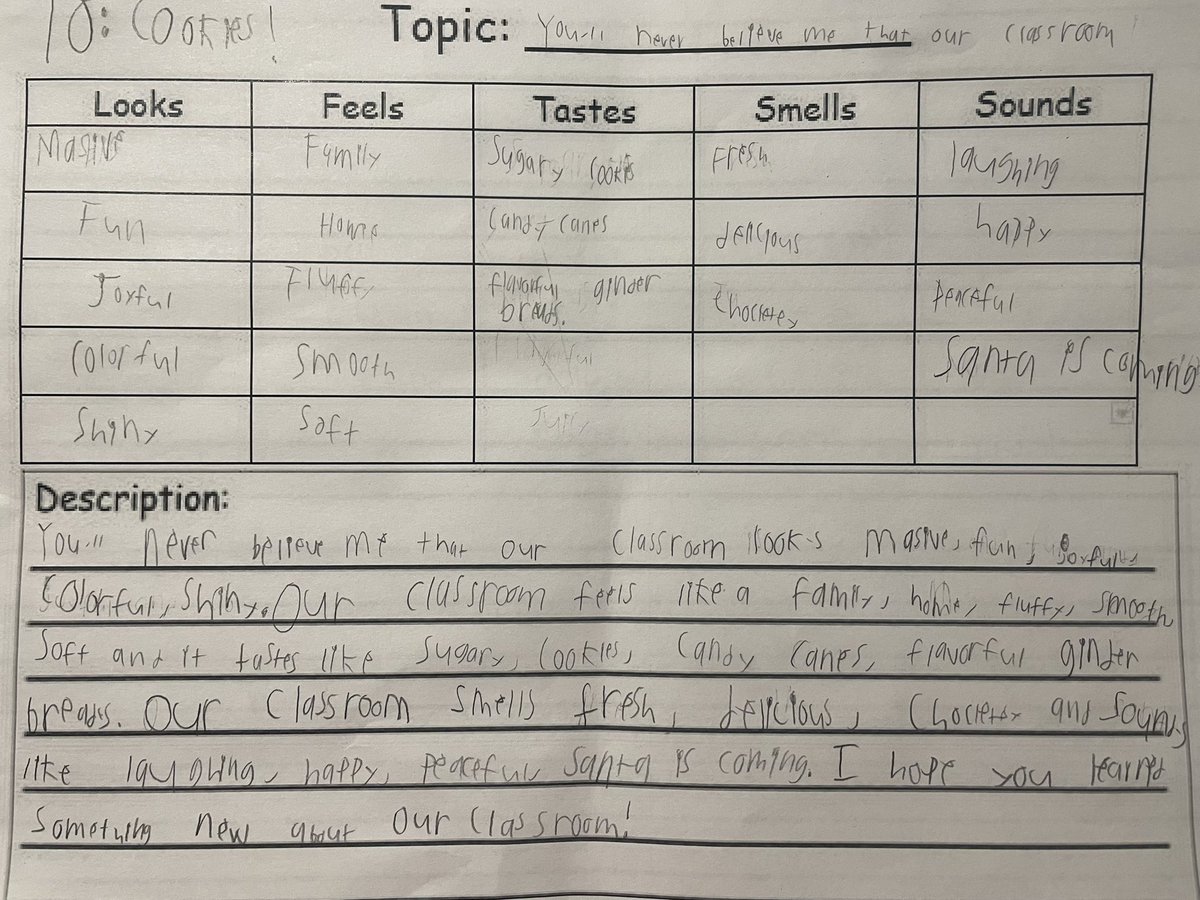 To: Cookies!
Topic: You'll never believe me that our classroom
Looks Feels Tastes Smells Sounds
Masive Family Sugary Cookis Fresh laughing
Fun Home Candy canes delicious happy
Joyful Fluffy flavorful ginder breads. Chocletey Peaceful
Colorful Smooth Santa is coming
Shiny Soft
Description:
You'll never believe me that our classroom looks masive, fun, Joyful,
Colorful, Shiny. Our classroom feels like a family, home, fluffy, smooth
Soft and it tastes like Sugary, Cookies, Candy canes, flavorful ginder
breads. Our classroom smells fresh, delicious, Chocletey and Sounds
like laughing, happy, peaceful, Santa is coming. I hope you learned
Something new about our classroom!